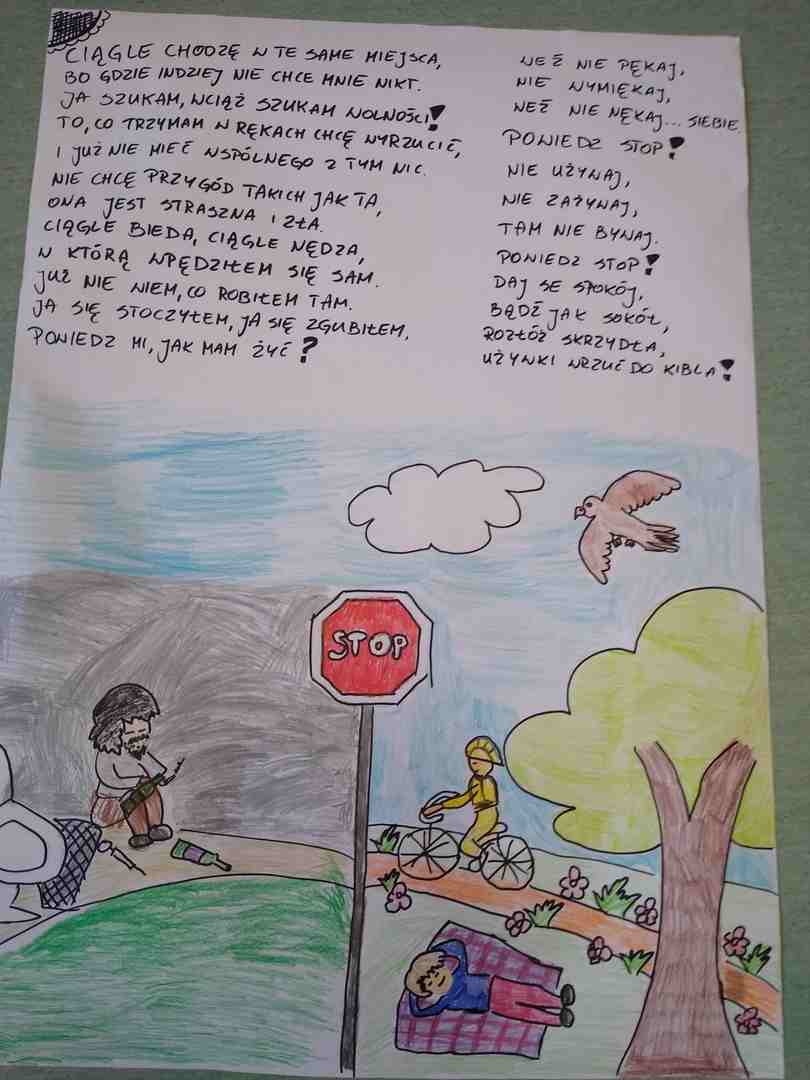 CIĄGLE CHODZĘ W TE SAME MIEJSCA,
BO GDZIE INDZIEJ NIE CHCE MNIE NIKT.
JA SZUKAM, WCIĄŻ SZUKAM WOLNOŚCI!
TO, CO TRZYMAM W RĘKACH CHCĘ WYRZUCIĆ,
I JUŻ NIE MIEĆ WSPÓLNEGO Z TYM NIC.
NIE CHCĘ PRZYGÓD TAKICH JAK TA,
ONA JEST STRASZNA I ZŁA.
CIĄGLE BIEDA, CIĄGLE NĘDZA,
W KTÓRĄ WPĘDZIŁEM SIĘ SAM.
JUŻ NIE WIEM, CO ROBIŁEM TAM.
JA SIĘ STOCZYŁEM, JA SIĘ ZGUBIŁEM.
POWIEDZ MI, JAK MAM ŻYĆ?
WEŹ NIE PĘKAJ,
NIE WYMIĘKAJ,
WEŹ NIE NĘKAJ... SIEBIE.
POWIEDZ STOP!
NIE UŻYWAJ,
NIE ZAŻYWAJ,
TAM NIE BYWAJ.
POWIEDZ STOP!
DAJ SE SPOKÓJ,
BĄDŹ JAK SOKÓŁ,
ROZŁÓŻ SKRZYDŁA,
UŻYWKI WRZUĆ DO KIBLA!
STOP